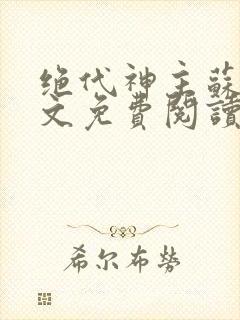 绝代神主蘇
文免費閱讀
希尔布勞